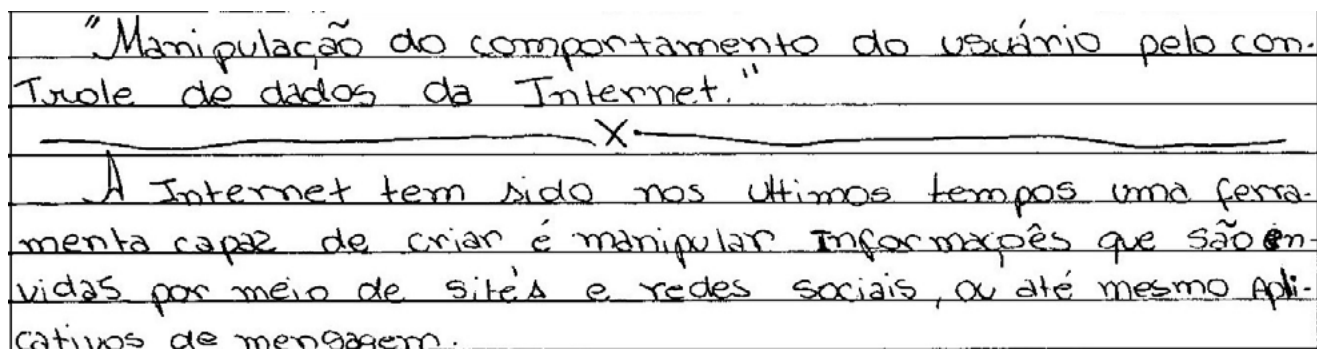 "Manipulação do comportamento do usuário pelo con-
trole de dados da Internet."
X
A Internet tem sido nos ultimos tempos uma ferra-
menta capaz de criar é manipular informaçoês que são en-
vidas por meio de sités e redes sociais, ou até mesmo Apli-
cativos de mensagem.